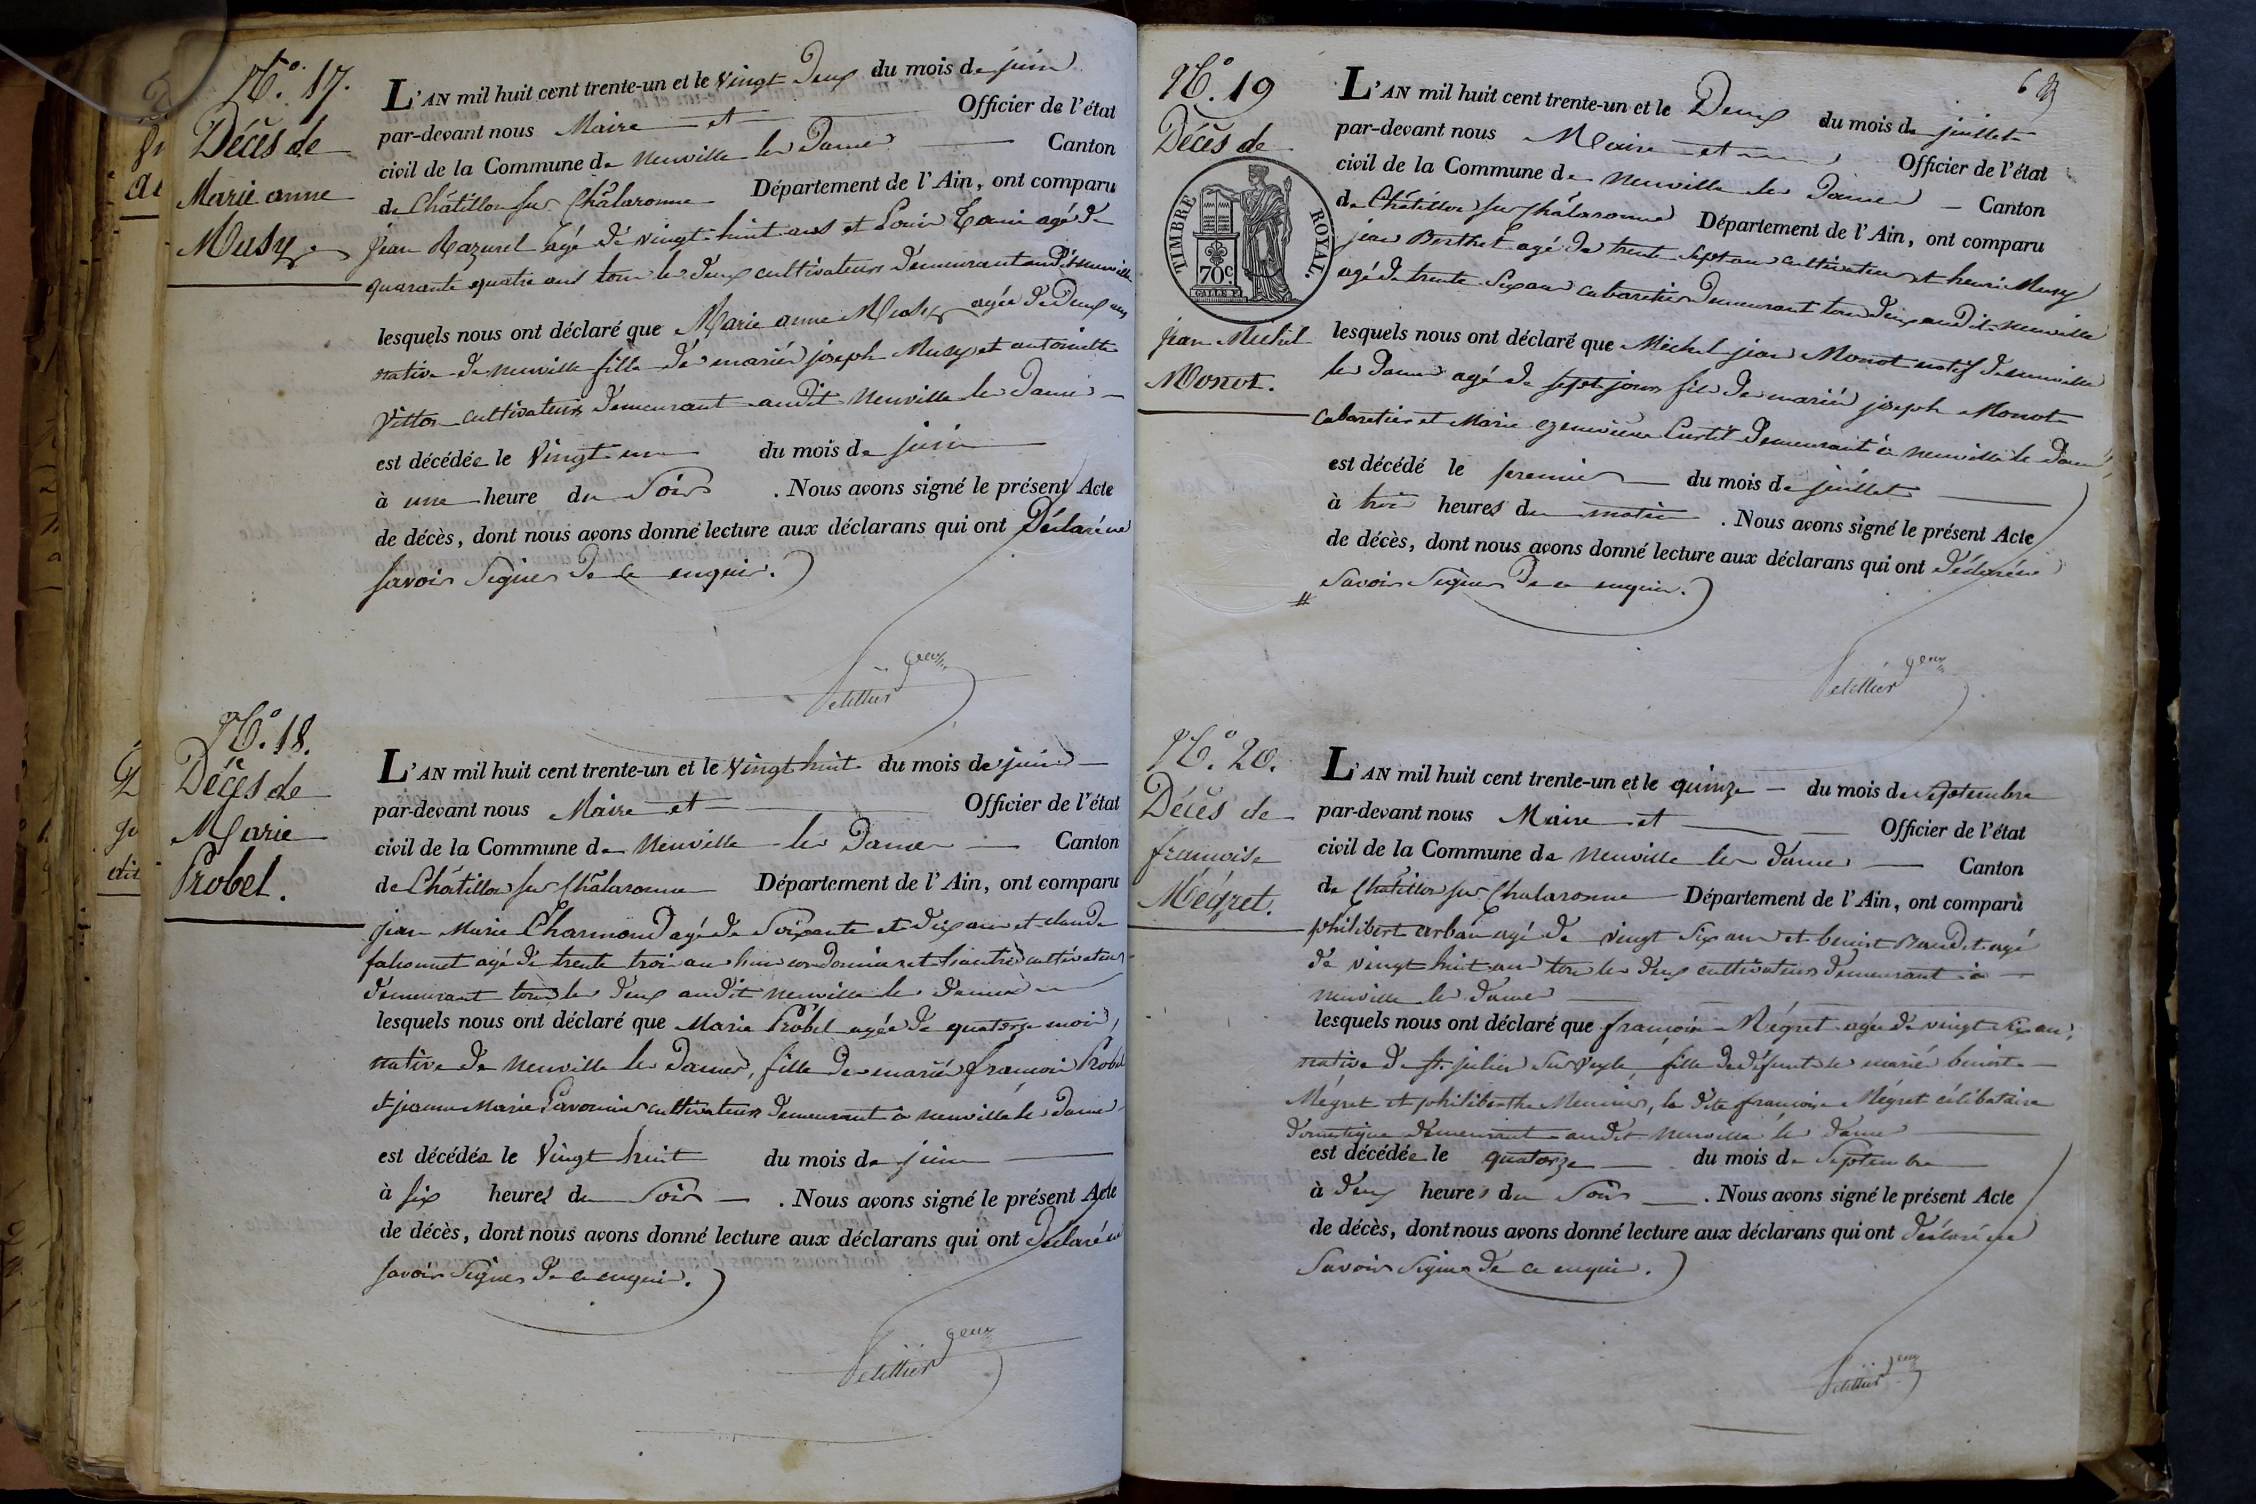 N.º 17.
Décès de
Marie anne
Musy
L'AN mil huit cent trente-un et le vingt Deux du mois de juin
par-devant nous Maire et Officier de l'état
civil de la Commune de Neuville les Dames Canton
de Châtillon sur Chalaronne Département de l'Ain, ont comparu
jean Razurel agé de vingt huit ans et Louis agé de
quarante quatre ans tous les deux cultivateurs demeurant audit neuville
lesquels nous ont déclaré que Marie anne Musy agée de Deux ans
native de neuville fille de mariés joseph Musy et antoinette
Vitton cultivateurs demeurant audit Neuville les Dames
est décédée le Vingt un du mois de juin
à une heure du Soir . Nous avons signé le présent Acte
de décès, dont nous avons donné lecture aux déclarans qui ont Déclaré ne
savoir signer de ce enquis.
N.º 18.
Décès de
Marie
Probel.
L'AN mil huit cent trente-un et le vingt huit du mois de juin
par-devant nous Maire et Officier de l'état
civil de la Commune de Neuville les Dames Canton
de Châtillon sur Chalaronne Département de l'Ain, ont comparu
jean Marie Charmond agé de Soixante et dix ans et claude
falconnet agé de trente trois ans l'un cordonnier et l'autre cultivateur
demeurant tous les deux audit neuville les dames
lesquels nous ont déclaré que Marie Probel agée de quatorze mois,
native de Neuville les Dames, fille de mariés françois Probel
et jeanne Marie cultivateurs demeurant à neuville les dames
est décédée le Vingt huit du mois de juin
à six heures du Soir . Nous avons signé le présent Acte
de décès, dont nous avons donné lecture aux déclarans qui ont Déclaré ne
savoir signer de ce enquis.
N.º 19
Décès de
TIMBRE ROYAL.
70c.
jean Michel
Monot.
L'AN mil huit cent trente-un et le Deux du mois de juillet
par-devant nous Maire et Officier de l'état
civil de la Commune de Neuville les Dames Canton
de Châtillon sur Chalaronne Département de l'Ain, ont comparu
jean Berthet agé de trente Sept ans cultivateur et henri Musy
agé de trente Six ans cabaretier demeurant tous deux audit neuville
lesquels nous ont déclaré que Michel jean Monot natif de neuville
les dames agé de sept jours fils de mariés joseph Monot
Cabaretier et Marie genevieve Curtil demeurant à neuville les Dames
est décédé le premier du mois de juillet
à trois heures du matin . Nous avons signé le présent Acte
de décès, dont nous avons donné lecture aux déclarans qui ont déclaré ne
savoir signer de ce enquis.
N.º 20.
Décès de
françoise
Mégret.
L'AN mil huit cent trente-un et le quinze du mois de Septembre
par-devant nous Maire et Officier de l'état
civil de la Commune de Neuville les dames Canton
de Châtillon sur Chalaronne Département de l'Ain, ont comparu
philibert arban agé de vingt Six ans et benoit Baudet agé
de vingt huit ans tous les deux cultivateurs demeurant à
neuville les dames
lesquels nous ont déclaré que françoise Mégret agée de vingt six ans,
native de St. julien sur Veyle, fille de défunts les mariés benoit
Mégret et philiberthe Meunier, la dite françoise Mégret célibataire
domestique demeurant audit Neuville les dames
est décédée le quatorze du mois de Septembre
à deux heures du Soir . Nous avons signé le présent Acte
de décès, dont nous avons donné lecture aux déclarans qui ont déclaré ne
Savoir signer de ce enquis.